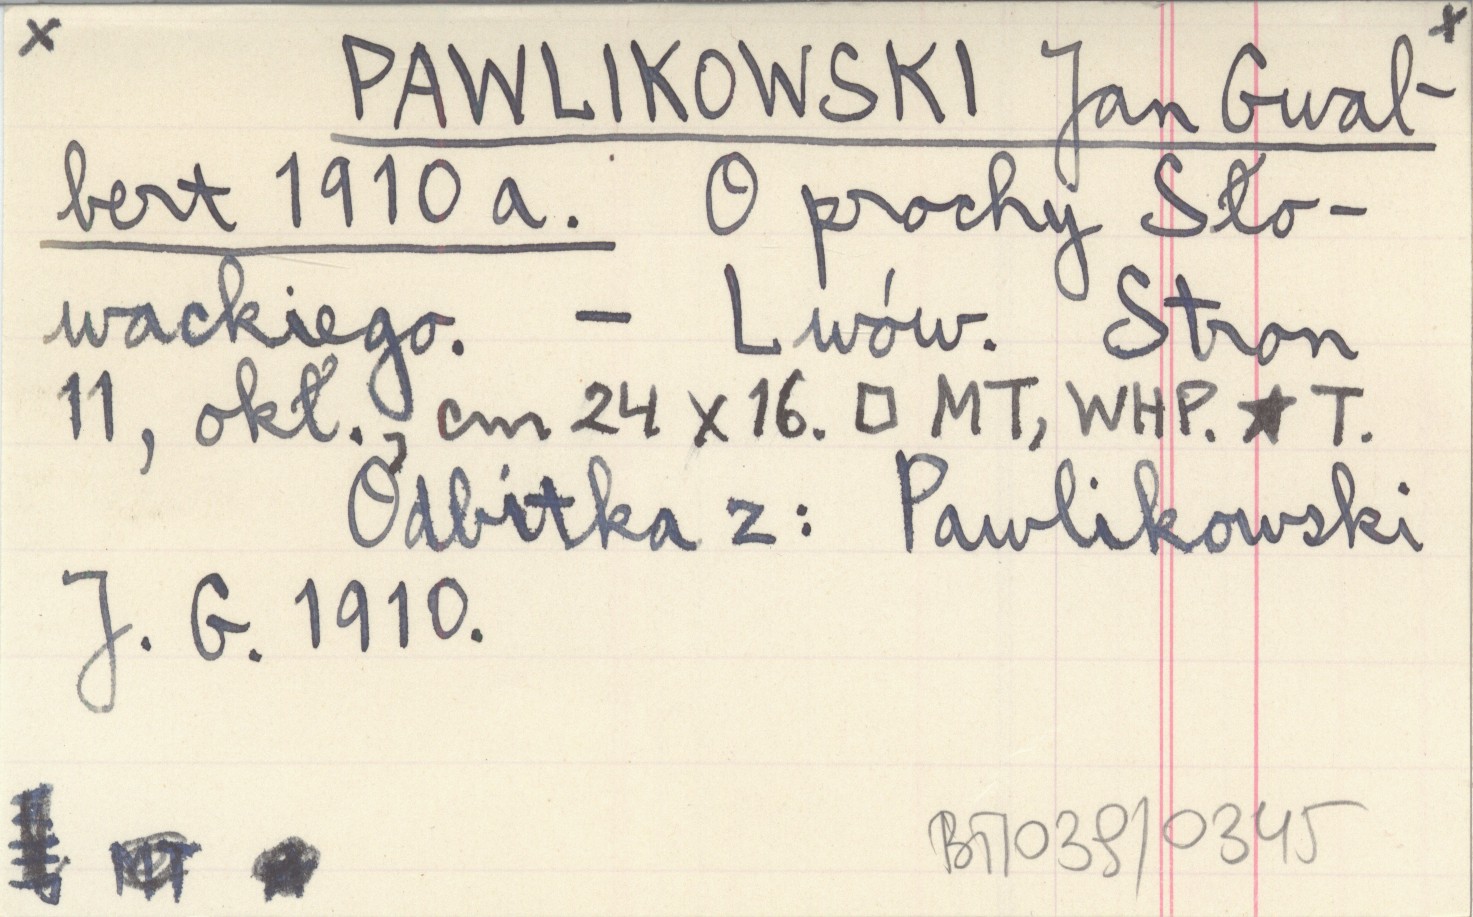 x x
PAWLIKOWSKI Jan Gwal-
bert 1910 a. O prochy Sło-
wackiego. - Lwów. Stron
11, okł., cm 24 x 16. □ MT, WHP. ★ T.
Odbitka z: Pawlikowski
J. G. 1910.
MT
BT/039/0345